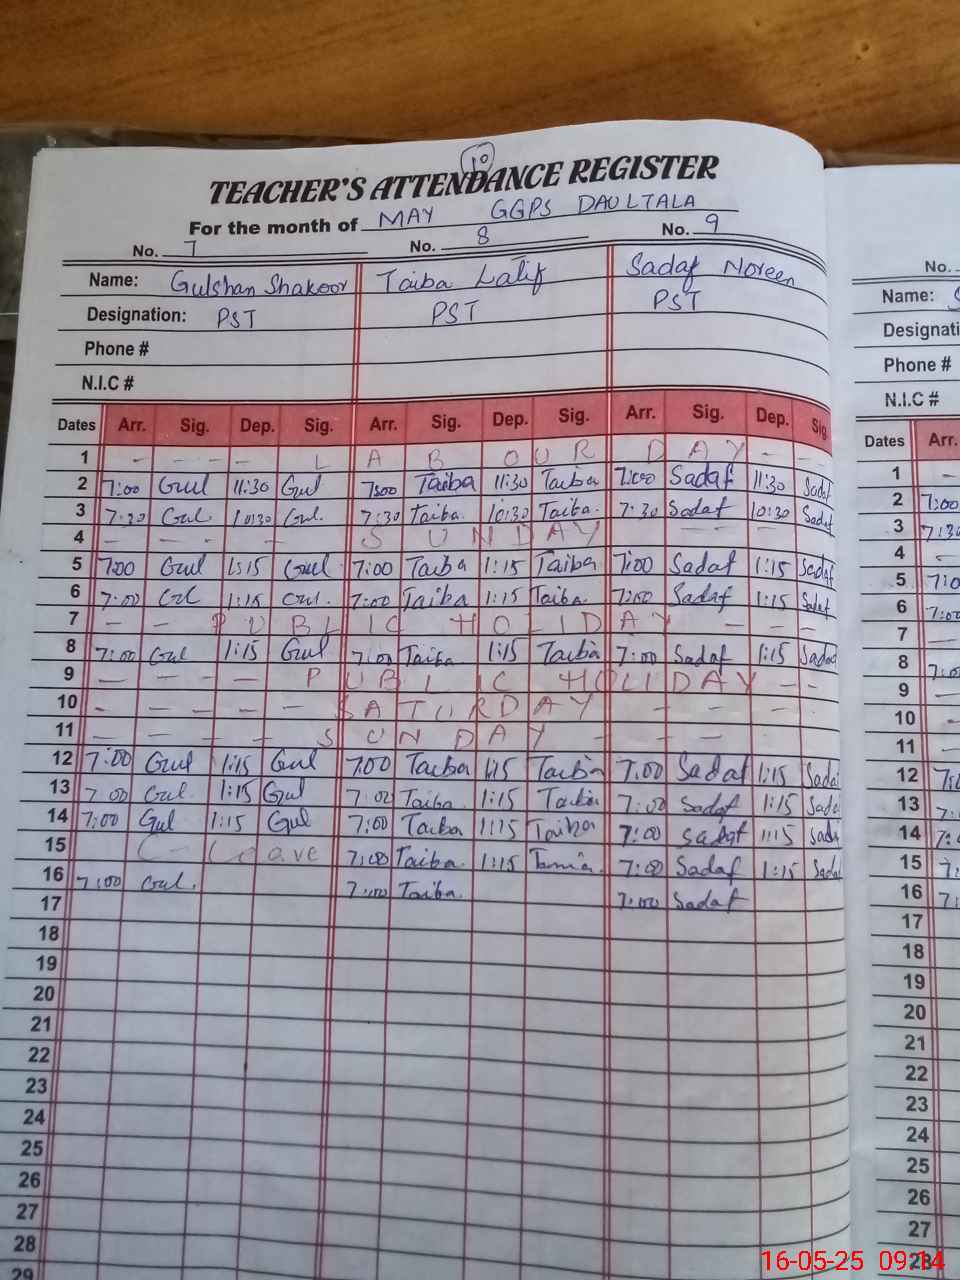 10
TEACHER'S ATTENDANCE REGISTER
For the month of MAY GGPS DAULTALA
No. 7 No. 8 No. 9
Name: Gulshan Shakoor Taiba Latif Sadaf Noreen
Designation: PST PST PST
Phone #
N.I.C #
Dates Arr. Sig. Dep. Sig. Arr. Sig. Dep. Sig. Arr. Sig. Dep. Sig.
1 - - - - L A B O U R D A Y - -
2 7:00 Gul 11:30 Gul 7:00 Taiba 11:30 Taiba 7:00 Sadaf 11:30 Sadaf
3 7:30 Gul. 10:30 Gul. 7:30 Taiba. 10:30 Taiba. 7:30 Sadaf 10:30 Sadaf
4 - - - - S U N D A Y - - - -
5 7:00 Gul 1:15 Gul 7:00 Taiba 1:15 Taiba 7:00 Sadaf 1:15 Sadaf
6 7:00 Gul 1:15 Gul. 7:00 Taiba 1:15 Taiba. 7:00 Sadaf 1:15 Sadaf
7 - - P U B L I C H O L I D A Y - - -
8 7:00 Gul 1:15 Gul 7:00 Taiba. 1:15 Taiba 7:00 Sadaf 1:15 Sadaf
9 - - - - P U B L I C H O L I D A Y - -
10 - - - - - S A T U R D A Y - - - -
11 - - - - S U N D A Y - - - -
12 7:00 Gul 1:15 Gul 7:00 Taiba 1:15 Taiba 7:00 Sadaf 1:15 Sadaf
13 7:00 Gul. 1:15 Gul 7:00 Taiba. 1:15 Taiba 7:00 Sadaf 1:15 Sadaf
14 7:00 Gul 1:15 Gul 7:00 Taiba 1:15 Taiba 7:00 Sadaf 1:15 Sadaf
15 C - Leave 7:00 Taiba. 1:15 7:00 Sadaf 1:15 Sadaf
16 7:00 Gul. 7:00 Taiba. 7:00 Sadaf
17
18
19
20
21
22
23
24
25
26
27
28
29
No.
Name:
Designati
Phone #
N.I.C #
Dates Arr.
1 -
2 7:00
3 7:30
4 -
5 7:0
6 7:00
7 -
8 7:0
9 -
10 -
11 -
12 7:0
13 7:
14 7:
15 7:
16 7:
17
18
19
20
21
22
23
24
25
26
27
28
16-05-25 09:14